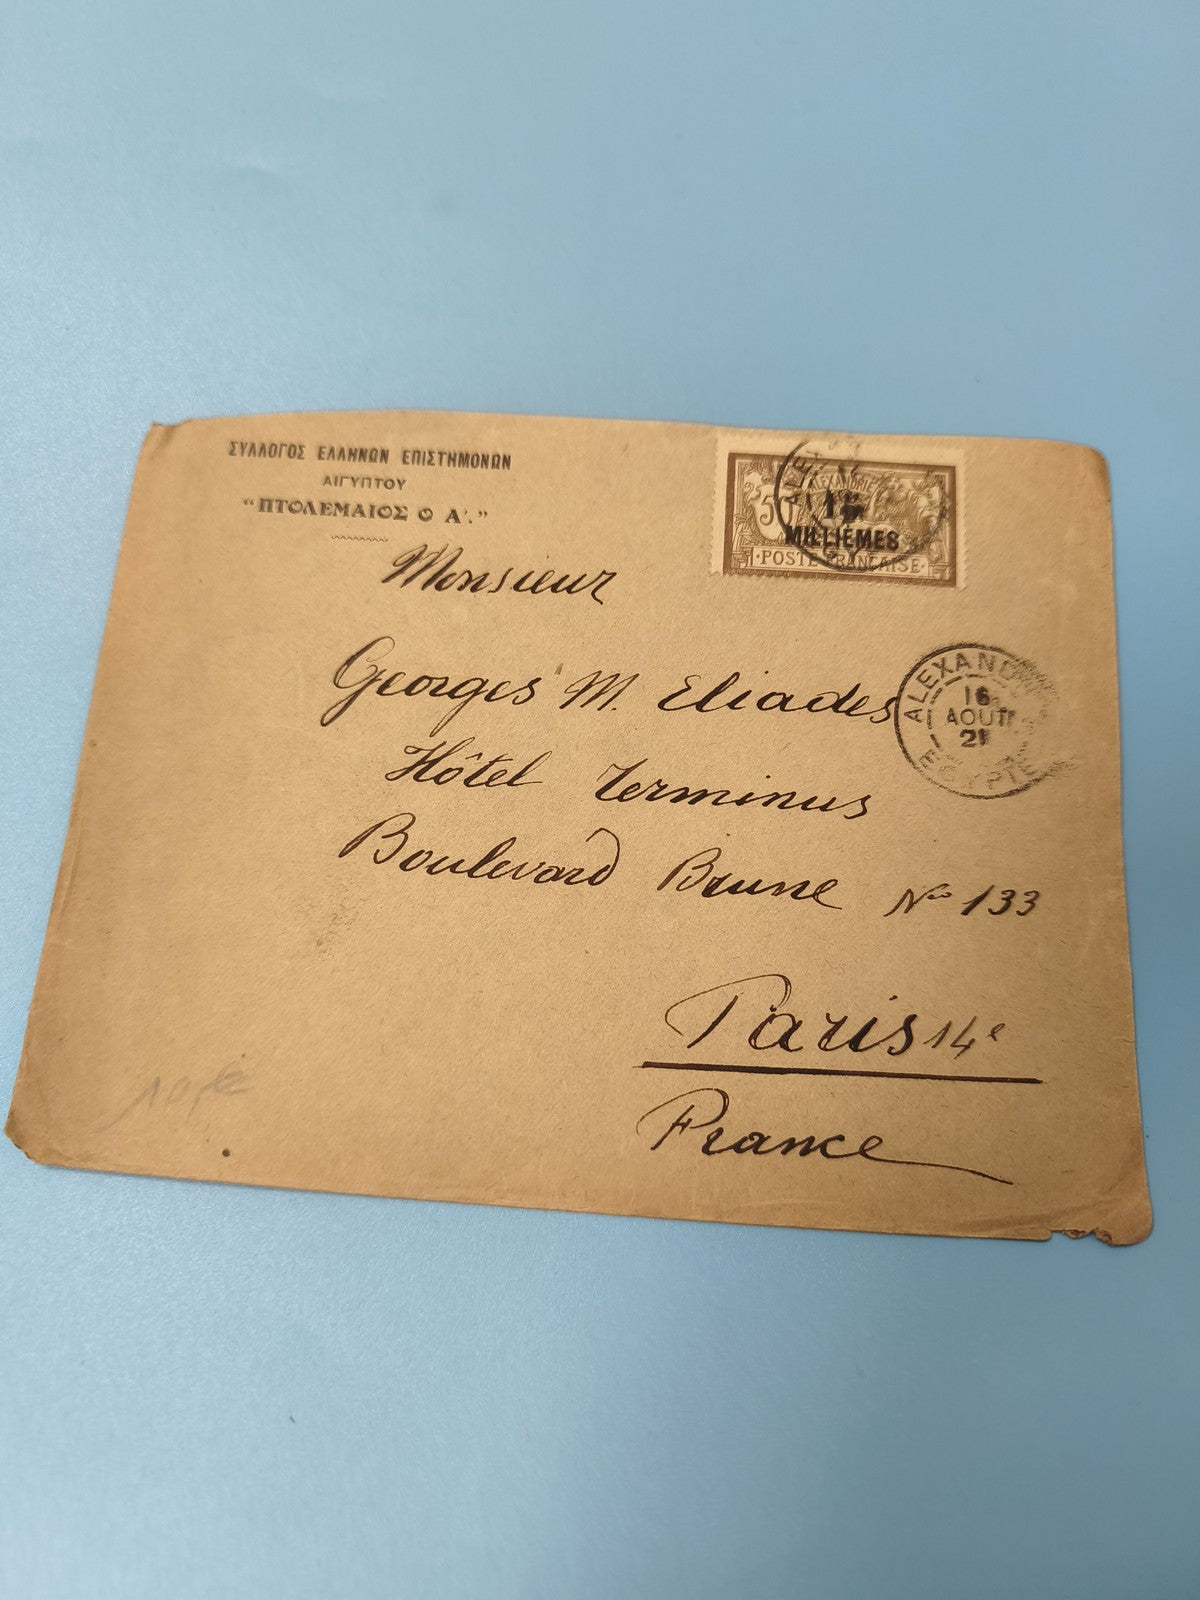 ΣΥΛΛΟΓΟΣ ΕΛΛΗΝΩΝ ΕΠΙΣΤΗΜΟΝΩΝ
ΑΙΓΥΠΤΟΥ
“ΠΤΟΛΕΜΑΙΟΣ Ο Α΄.”
50
ALEXANDRIE
15
MILLIÈMES
POSTE FRANÇAISE
Monsieur
Georges M. Eliades
ALEXAND
16
AOUT
21
EGYPTE
Hôtel Terminus
Boulevard Brune No 133
Paris 14e
France